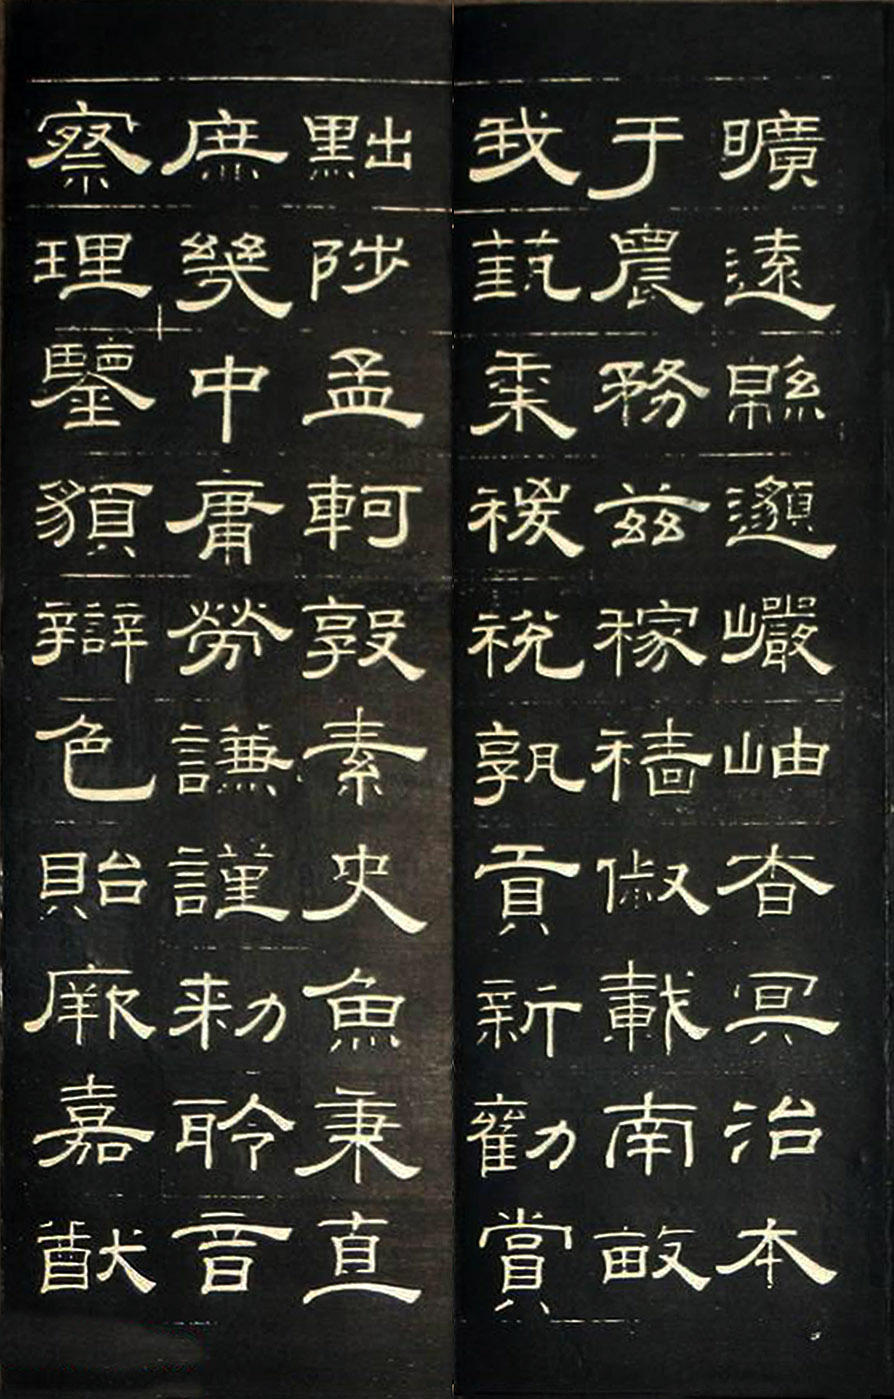 曠遠緜邈巖岫杳冥治本
于農務茲稼穡俶載南畝
我蓺黍稷稅孰貢新勸賞
黜陟孟軻敦素史魚秉直
庶幾中庸勞謙謹勅聆音
察理鑒貌辯色貽厥嘉猷